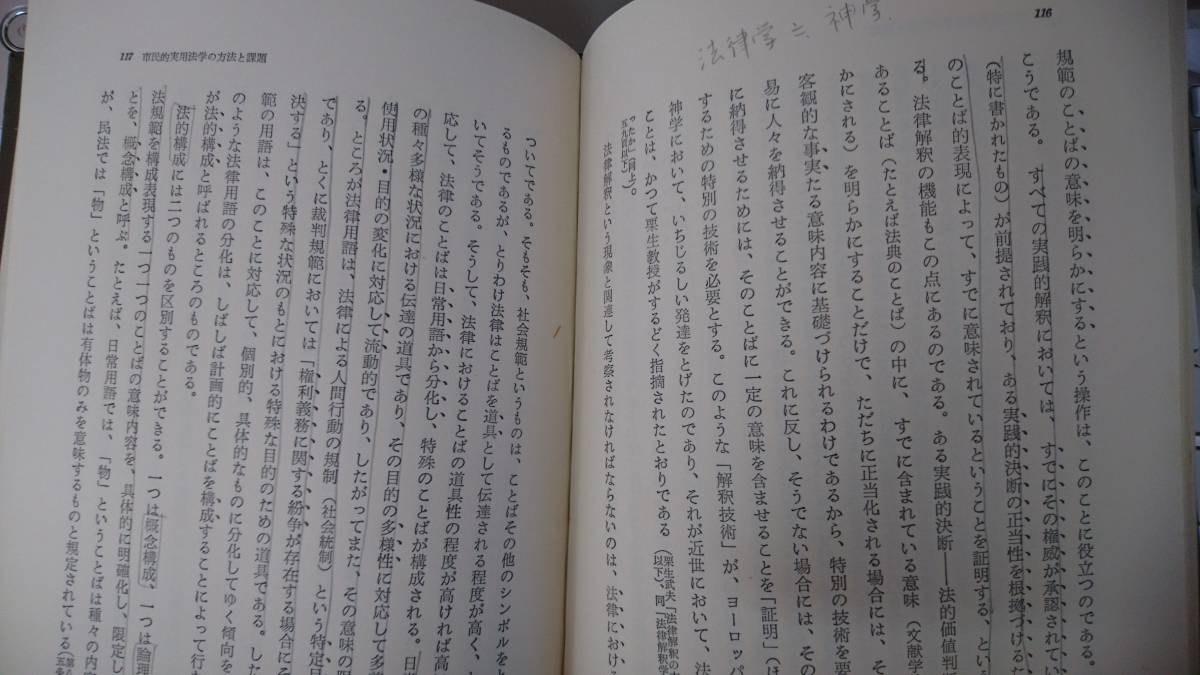 116
法律学ニ、神学
規範のことばの意味を明らかにするという操作は、このことに役立つのである。
こうである。すべての実践的解釈においては、すでにその権威が承認されてい
(特に書かれたもの)が前提されており、ある実践的決断の正当性を根拠づけるた
のことば的表現によって、すでに意味されているということを証明する、とい
る。法律解釈の機能もこの点にあるのである。ある実践的決断――法的価値判
あることば(たとえば法典のことば)の中に、すでに含まれている意味(文献学
かにされる)を明らかにすることだけで、ただちに正当化される場合には、そ
客観的な事実たる意味内容に基礎づけられるわけであるから、特別の技術を要
易に人々を納得させることができる。これに反し、そうでない場合には、その
に納得させるためには、そのことばに一定の意味を含ませることを「証明」(ほ
するための特別の技術を必要とする。このような「解釈技術」が、ヨーロッパ
神学において、いちじるしい発達をとげたのであり、それが近世において、法
ことは、かつて栗生教授がするどく指摘されたとおりである(栗生武夫「法律解釈の
以下)、同「法律解釈学
ったか」(同上)
五九頁以下)。
法律解釈という現象と関連して考察されなければならないのは、法律におけ
117 市民的実用法学の方法と課題
ついてである。そもそも、社会規範というものは、ことばその他のシンボルを
るものであるが、とりわけ法律はことばを道具として伝達される程度が高く、
いてそうである。そうして、法律におけることばの道具性の程度が高ければ高
応して、法律のことばは日常用語から分化し、特殊のことばが構成される。日
の種々多様な状況における伝達の道具であり、その目的の多様性に対応して多
使用状況・目的の変化に対応して流動的であり、したがってまた、その意味の限
る。ところが法律用語は、法律による人間行動の規制(社会統制)という特定目
であり、とくに裁判規範においては「権利義務に関する紛争が存在する場合に
決する」という特殊な状況のもとにおける特殊な目的のための道具である。した
範の用語は、このことに対応して、個別的、具体的なものに分化してゆく傾向を
のような法律用語の分化は、しばしば計画的にことばを構成することによって行
が法的構成と呼ばれるところのものである。
法的構成には二つのものを区別することができる。一つは概念構成、一つは論理
法規範を構成表現する一つ一つのことばの意味内容を、具体的に明確化し、限定し
とを、概念構成と呼ぶ。たとえば、日常用語では、「物」ということばは種々の内
が、民法では「物」ということばは有体物のみを意味するものと規定されている